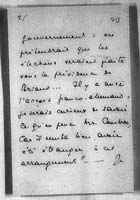 gouvernement : on
prétendrait que les
élections seraient faites
sous la présidence de
Briand... Il y a aussi
l'accord franco-allemand,
je serais curieux de savoir
ce qu'en pense Mr. Cambon
Car il semble bien avoir
été étranger à cet
arrangement ? — Je